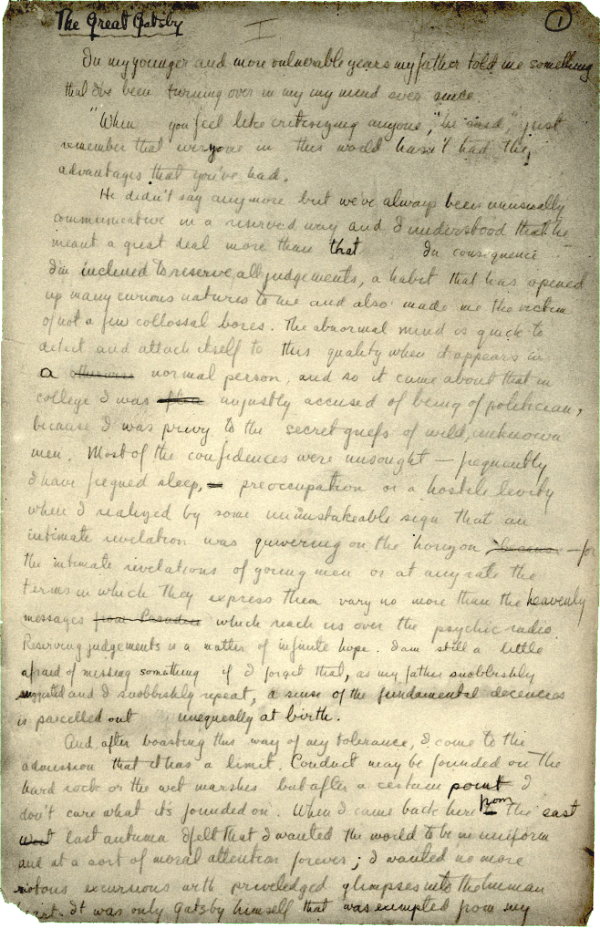 The Great Gatsby
I
1
In my younger and more vulnerable years my father told me something
that I've been turning over in my my mind ever since
"When you feel like critisizing anyone," he said, "just
remember that everyone in this world hasn't had the
advantages that you've had.
He didn't say anymore but we've always been unusually
communicative in a reserved way and I understood that he
meant a great deal more than that In consequence
I'm inclined to reserve all judgements, a habit that has opened
up many curious natures to me and also made me the victim
of not a few collossal bores. The abnormal mind is quick to
detect and attach itself to this quality when it appears in
a normal person, and so it came about that in
college I was unjustly accused of being of politician,
because I was privy to the secret griefs of wild, unknown
men. Most of the confidences were unsought — frequently
I have feigned sleep, preoccupation or a hostile levity
when I realized by some unmistakeable sign that an
intimate revelation was quivering on the horizon — for
the intimate revelations of young men or at any rate the
terms in which they express them vary no more than the heavenly
messages from Paradise which reach us over the psychic radio.
Reserving judgements is a matter of infinite hope. I am still a little
afraid of missing something if I forget that, as my father snobbishly
suggested and I snobbishly repeat, a sense of the fundamental decencies
is parcelled out unequally at birth.
And, after boasting this way of my tolerance, I come to the
admission that it has a limit. Conduct may be founded on the
hard rock or the wet marshes but after a certain point I
don't care what it's founded on. When I came back here from the east
West last autumn I felt that I wanted the world to be in uniform
and at a sort of moral attention forever; I wanted no more
riotous excursions with priviledged glimpses into the human
heart. It was only Gatsby himself that was exempted from my